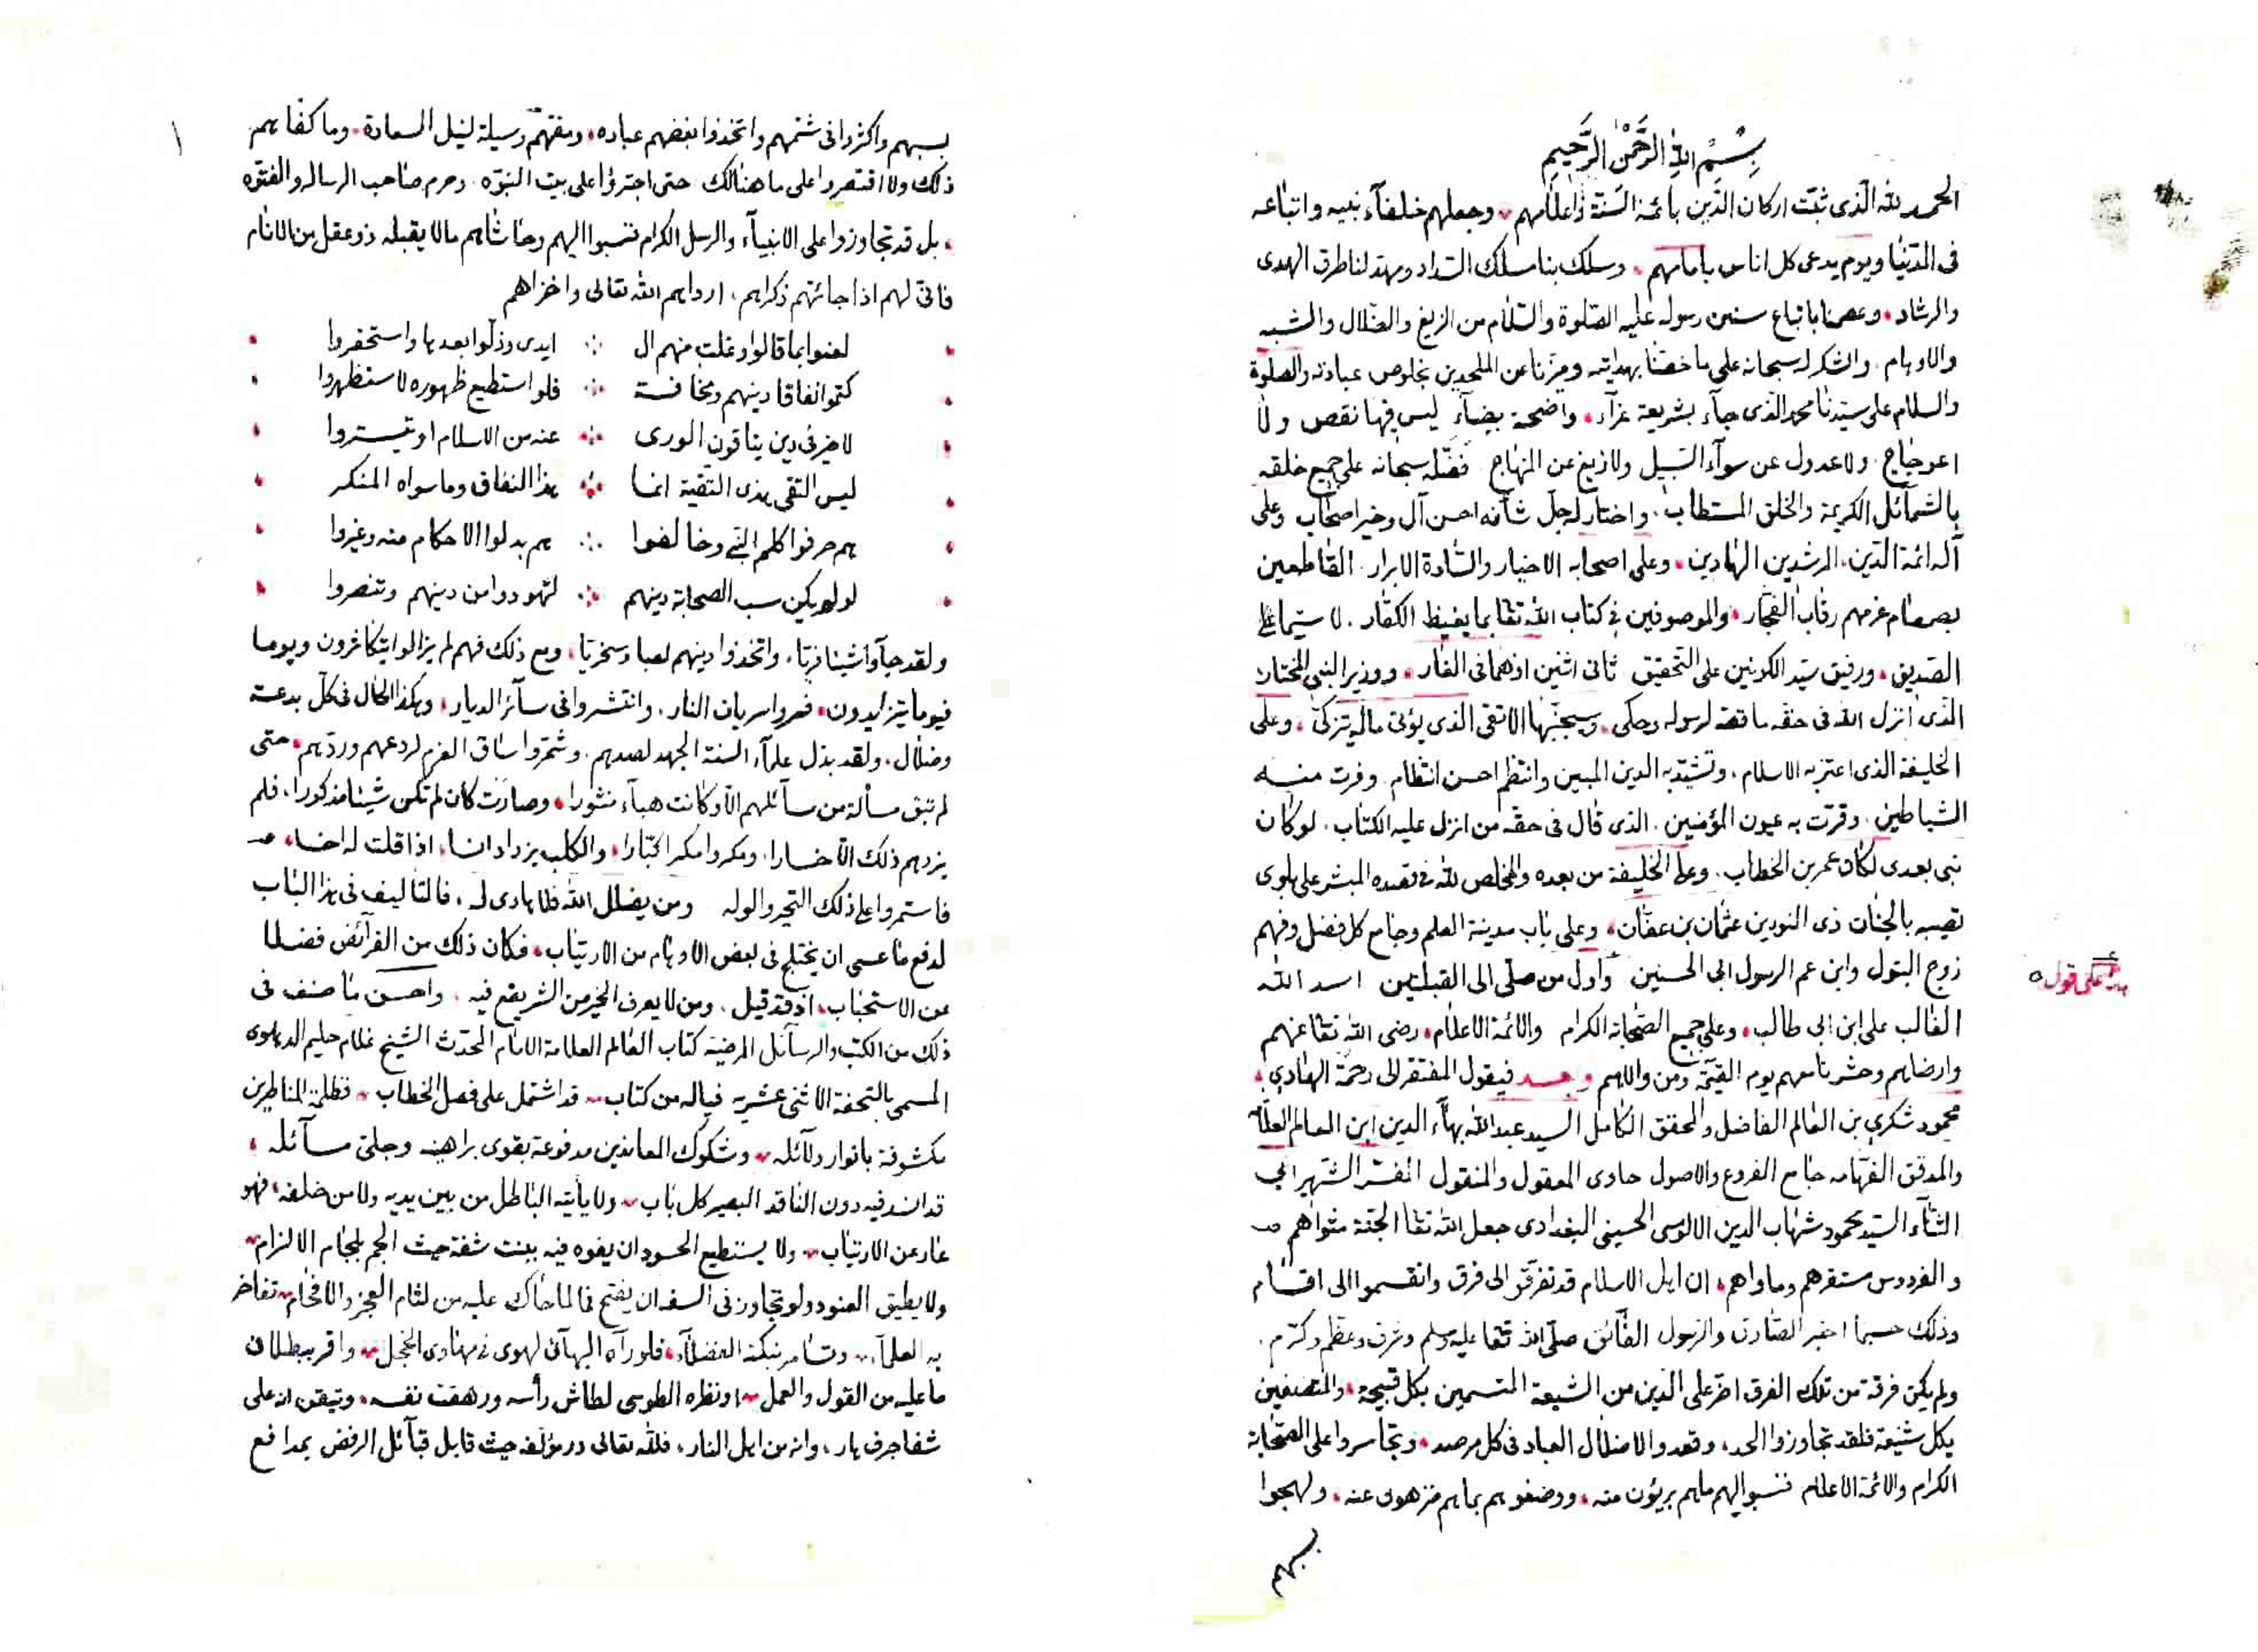 بِسْمِ اللهِ الرَّحْمٰنِ الرَّحِيمِ
الحمد لله الّذى ثبّت اركان الدّين بأئمة السّنة وأعلامهم وجعلهم خلفآء نبيه واتباعه
فى الدّنيا ويوم يدعى كل اناس بامامهم وسلك بنا مسلك السّداد ومهد لنا طرق الهدى
والرشاد وعصمنا باتباع سنن رسوله عليه الصّلوة والسّلام من الزيغ والضّلال والشبه
والاوهام والشكر له سبحانه على ما خصّنا بهدايته وميّزنا عن الملحدين بخلوص عبادته والصلوة
والسلام على سيّدنا محمد الّذى جآء بشريعة غرّآء واضحة بيضآء ليس فيها نقص ولا
اعوجاج ولا عدول عن سوآء السّبيل ولا زيغ عن المنهاج فضّله سبحانه على جميع خلقه
بالشمآئل الكريمة والخلق المستطاب واختار له جلّ شأنه احسن آل وخير اصحاب وعلى
آله ائمة الدّين المرشدين الهادين وعلى اصحابه الاخيار والسّادة الابرار القاطعين
بصمصام عزمهم رقاب الفجّار والموصوفين فى كتاب الله تعا بما يغيظ الكفّار لا سيّما على
الصّديق ورفيق سيّد الكونين على التحقيق ثانى اثنين اذ هما فى الغار ووزير النبى المختار
الّذى انزل الله فى حقّه ما قصّه لرسوله وحكى وسيجنّبها الاتقى الذى يؤتى ماله يتزكّى وعلى
الخليفة الذى اعتز به الاسلام وتشيّد به الدين المبين وانتظم احسن انتظام وفرت منه
الشياطين وقرّت به عيون المؤمنين الذى قال فى حقّه من انزل عليه الكتاب لو كان
نبى بعدى لكان عمر بن الخطاب وعلى الخليفة من بعده والمخلص لله فى قصده المبشر على بلوى
تصيبه بالجنان ذى النورين عثمان بن عفّان وعلى باب مدينة العلم وجامع كل فضل وفهم
زوج البتول وابن عم الرسول ابى الحسنين وأول من صلّى الى القبلتين اسد الله
على قول
الغالب على ابن ابى طالب وعلى جميع الصّحابة الكرام والائمة الاعلام رضى الله تعا عنهم
وارضاهم وحشرنا معهم يوم القيمة ومن والاهم وبعد فيقول المفتقر الى رحمة الهادى
محمود شكري بن العالم الفاضل والمحقق الكامل السيد عبدالله بهآء الدين ابن العالم العلّامة
والمدقق الفهّامه جامع الفروع والاصول حاوى المعقول والمنقول المفسّر الشهير ابي
الثنآء السّيد محمود شهاب الدين الالوسى الحسينى البغدادى جعل الله تعا الجنّة مثواهم
والفردوس مستقرهم ومأواهم ان اهل الاسلام قد تفرّقوا الى فرق وانقسموا الى اقسام
وذلك حسبما اخبر الصّادق والرسول الفائق صلّى الله تعا عليه وسلم وشرف وعظم وكرّم
ولم يكن فرقة من تلك الفرق اضرّ على الدّين من الشيعة المتسمين بكل قبيحة والمتصفين
بكل شنيعة فلقد تجاوزوا الحد وقعدوا لاضلال العباد فى كل مرصد وتجاسروا على الصّحابة
الكرام والائمة الاعلام فنسبوا اليهم ما هم بريؤن منه ووصفوهم بما هم منزهون عنه ولهجوا
بسبهم
١
بسبهم واكثروا فى شتمهم واتخذوا بغضهم عباده ومقتهم وسيلة لنيل السعادة وما كفاهم
ذلك ولا اقتصروا على ما هنالك حتى اجترؤا على بيت النبوّه وحرم صاحب الرسالة والفتوّه
بل قد تجاوزوا على الانبيآء والرسل الكرام فنسبوا اليهم وحاشاهم ما لا يقبله ذو عقل من الانام
فانّى لهم اذا جائتهم ذكراهم ارداهم الله تعالى واخزاهم
لعنوا بما قالوا وغلت منهم ال ايدى وذلّوا بعدها واستحقروا
كتموا نفاقا دينهم ومخافة فلو استطيع ظهوره لاستظهروا
لا خير فى دين ينافون الورى عنه من الاسلام او يتستروا
ليس التقى هذى التقية انما هذا النفاق وما سواه المنكر
هم حرفوا كلم النبى وخالفوا هم بدلوا الاحكام منه وغيروا
لو لم يكن سب الصحابة دينهم لتهودوا من دينهم وتنصروا
ولقد جآؤا شيئا فريّا واتخذوا دينهم لعبا وسخريّا ومع ذلك فهم لم يزالوا يتكاثرون ويوما
فيوما يتزايدون فسروا سريان النار وانتشروا فى سآئر الديار وهكذا الحال فى كلّ بدعة
وضلال ولقد بذل علمآء السنة الجهد لصدهم وشمّروا ساق العزم لردعهم وردّهم حتى
لم تبق مسألة من مسآئلهم الّا وكانت هبآء منثورا وصارت كان لم تكن شيئا مذكورا فلم
يزدهم ذلك الّا خسارا ومكروا مكرا كبّارا والكلب يزداد انسا اذا قلت له اخسا
فاستمروا على ذلك التحير والوله ومن يضلل الله فلا هادى له فالتأليف فى هذا الباب
لدفع ما عسى ان يختلج فى بعض الاوهام من الارتياب فكان ذلك من الفرآئض فضلا
عن الاستحباب اذ قد قيل ومن لا يعرف الخير من الشر يقع فيه واحسن ما صنف فى
ذلك من الكتب والرسآئل المرضية كتاب العالم العلامة الامام المحدّث الشيخ غلام حليم الدهلوى
المسمى بالتحفة الاثنى عشرية فياله من كتاب قد اشتمل على فصل الخطاب فظلمة المناظرين
مكشوفة بانوار دلآئله وشكوك المعاندين مدفوعة بقوى براهينه وجلىّ مسآئله
قد انسد فيه دون الناقد البصير كل باب ولا يأتيه الباطل من بين يديه ولا من خلفه فهو
عار عن الارتياب ولا يستطيع الحسود ان يفوه فيه ببنت شفة حيث الجم بلجام الالزام
ولا يطيق العنود ولو تجاوز فى السفه ان يفتح فا لما حاك عليه من لثام العجز والافحام تفاخر
به العلمآء وتسامر بنكته الفضلآء فلو رآه البهآئى لهوى فى مهاوى الخجل واقر ببطلان
ما عليه من القول والعمل او نظره الطوسى لطاش رأسه ورهقت نفسه وتيقن انه على
شفا جرف هار وانه من اهل النار فلله تعالى در مؤلفه حيث قابل قبآئل الرفض بمدافع